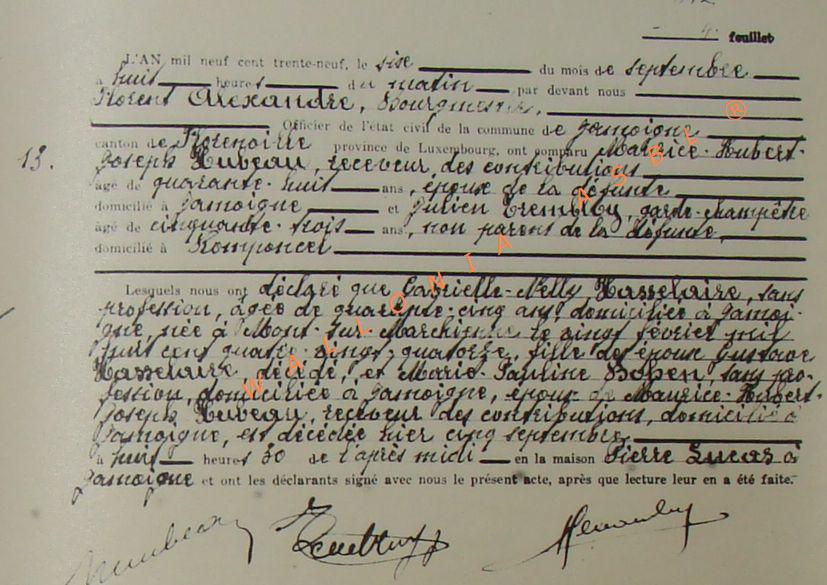 feuillet
L'AN mil neuf cent trente-neuf, le six du mois de septembre
à huit heures du matin par devant nous
Florent Alexandre, Bourgmestre,
Officier de l'état civil de la commune de Jamoigne
canton de Florenville province de Luxembourg, ont comparu Maurice-Hubert-
13. Joseph Hubeau, receveur des contributions
âgé de quarante-huit ans, époux de la défunte
domicilié à Jamoigne et Julien garde-champêtre
âgé de cinquante-trois ans, non parent de la défunte,
domicilié à Romponcel
Lesquels nous ont déclaré que Gabrielle-Nelly Hasselaire, sans
profession, âgée de quarante-cinq ans, domiciliée à Jamoi-
gne, née à Mont-sur-Marchienne le vingt février mil
huit cent quatre-vingt-quatorze, fille des époux Gustave
Hasselaire, décédé, et Marie-Pauline sans pro-
fession, domiciliée à Jamoigne, épouse de Maurice-Hubert-
Joseph Hubeau, receveur des contributions, domicilié à
Jamoigne, est décédée hier cinq septembre
à huit heures 30 de l'après midi en la maison Pierre Lucas à
Jamoigne et ont les déclarants signé avec nous le présent acte, après que lecture leur en a été faite.
WALLONIA ASBL ®